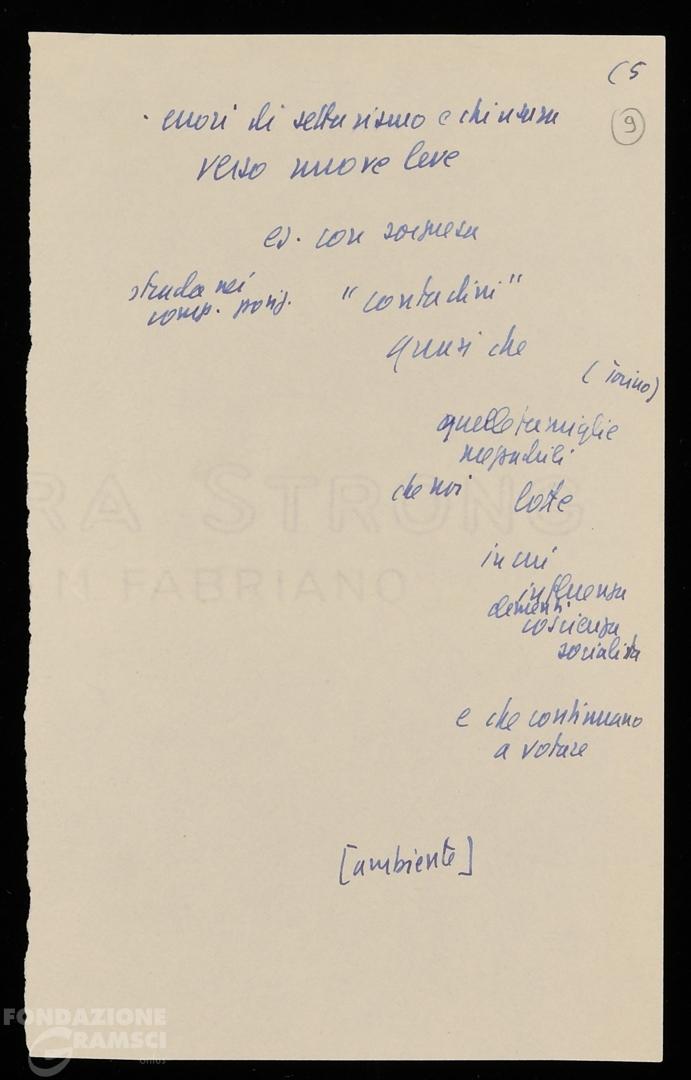 (5
9
· errori di settarismo e chiusura
verso nuove leve
es. con sorpresa
strada nei
comp.
"contadini"
quasi che
(Torino)
quelle famiglie
che noi
lotte
in cui
influenza
elementi
coscienza
socialista
e che continuano
a votare
[ambiente]
RA STRONG
M FABRIANO
FONDAZIONE
GRAMSCI
onlus